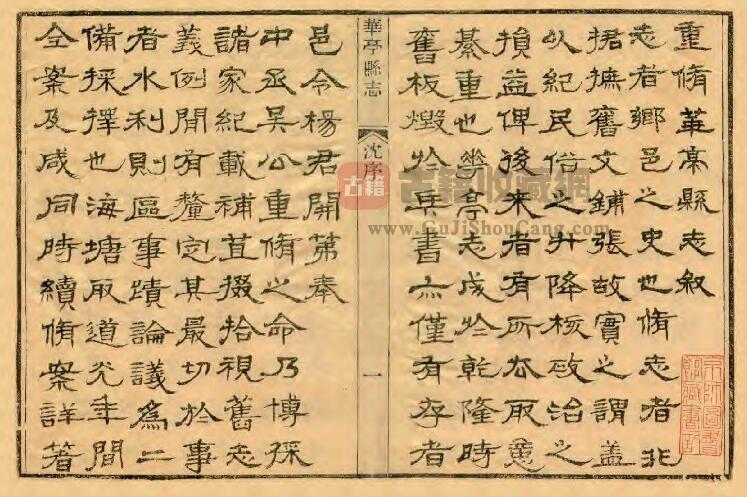 重脩華亭縣志叙
志者鄉邑之史也脩志者非
捃摭舊文鋪張故實之謂蓋
以紀民俗之升降核政治之
損益俾後来者有所取意
綦重也華亭志成於乾隆時
舊板燬於兵書亦僅有存者
華亭縣志
沈序
一
邑令楊君開第奉
中丞吳公重脩之命乃博採
諸家紀載補苴掇拾視舊志
義例間有釐定其最切於事
者水利則區事蹟論議為二
備採擇也海塘取道光年間
全案及咸同時續脩案詳著
古籍
古籍收藏網
www.GuJiShouCang.com